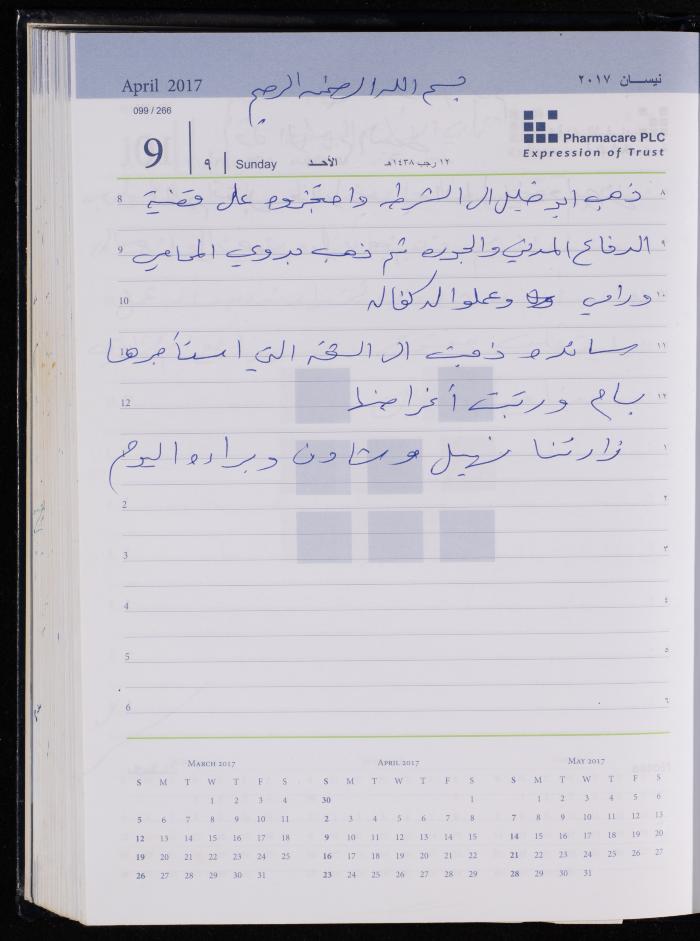 April 2017
بسم الله الرحمن الرحيم
نيسان ٢٠١٧
099 / 266
9
٩
Sunday
الأحد
١٢ رجب ١٤٣٨هـ
Pharmacare PLC
Expression of Trust
8 ذهب ابو خليل الى الشرطه واحتجزوه على قضية ٨
9 الدفاع المدني والجوره ثم ذهب بدوي المحامي ٩
10 ورامي وعملوا له كفاله ١٠
11 سائده ذهبت الى الشقه التي استأجرها ١١
12 بام ورتبت أغراضنا ١٢
زارتنا نهيل وشادن وبراءه اليوم ١
2 ٢
3 ٣
4 ٤
5 ٥
6 ٦
March 2017
S M T W T F S
1 2 3 4
5 6 7 8 9 10 11
12 13 14 15 16 17 18
19 20 21 22 23 24 25
26 27 28 29 30 31
April 2017
S M T W T F S
30 1
2 3 4 5 6 7 8
9 10 11 12 13 14 15
16 17 18 19 20 21 22
23 24 25 26 27 28 29
May 2017
S M T W T F S
1 2 3 4 5 6
7 8 9 10 11 12 13
14 15 16 17 18 19 20
21 22 23 24 25 26 27
28 29 30 31